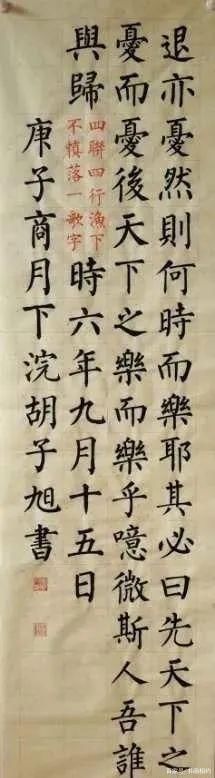 退亦憂然則何時而樂耶其必曰先天下之
憂而憂後天下之樂而樂乎噫微斯人吾誰
與歸
四聯四行漁下
不慎落一歌字
時六年九月十五日
庚子商月下浣胡子旭書